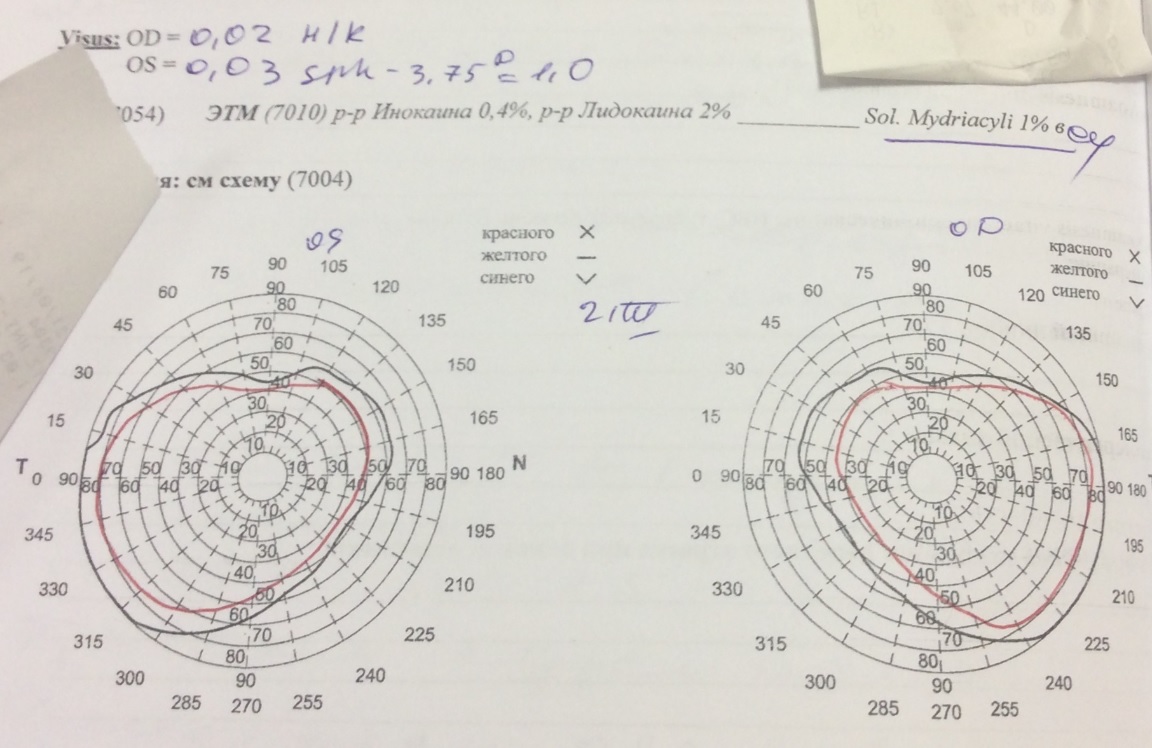 Visus: OD = 0,02 н/к
OS = 0,03 sph - 3,75 D = 1,0
054) ЭТМ (7010) р-р Инокаина 0,4%, р-р Лидокаина 2% __________ Sol. Mydriacyli 1% в ou
я: см схему (7004)
OS
красного ×
желтого —
синего ∨
OD
красного ×
желтого —
синего ∨
75 90 105
60 120
45 135
30 150
15 165
T 0 90 180 N
345 195
330 210
315 225
300 240
285 270 255
90
80
70
60
50
40
30
20
10
80 70 60 50 40 30 20 10 10 20 30 40 50 60 70 80
10
20
30
40
50
60
70
80
90
75 90 105
60 120
45 135
30 150
15 165
0 90 90 180
345 195
330 210
315 225
300 240
285 270 255
90
80
70
60
50
40
30
20
10
80 70 60 50 40 30 20 10 10 20 30 40 50 60 70 80
10
20
30
40
50
60
70
80
90